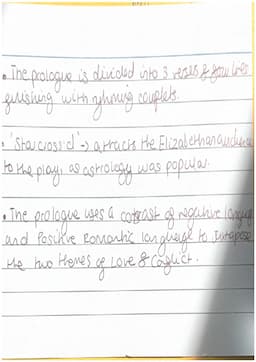 • The prologue is divided into 3 verses of four lines
finishing with rhyming couplets.
• 'Star cross'd' → attracts the Elizabethan audience
to the play, as astrology was popular.
• The prologue uses a contrast of negative language
and Positive Romantic language to
the two themes of Love & Conflict.